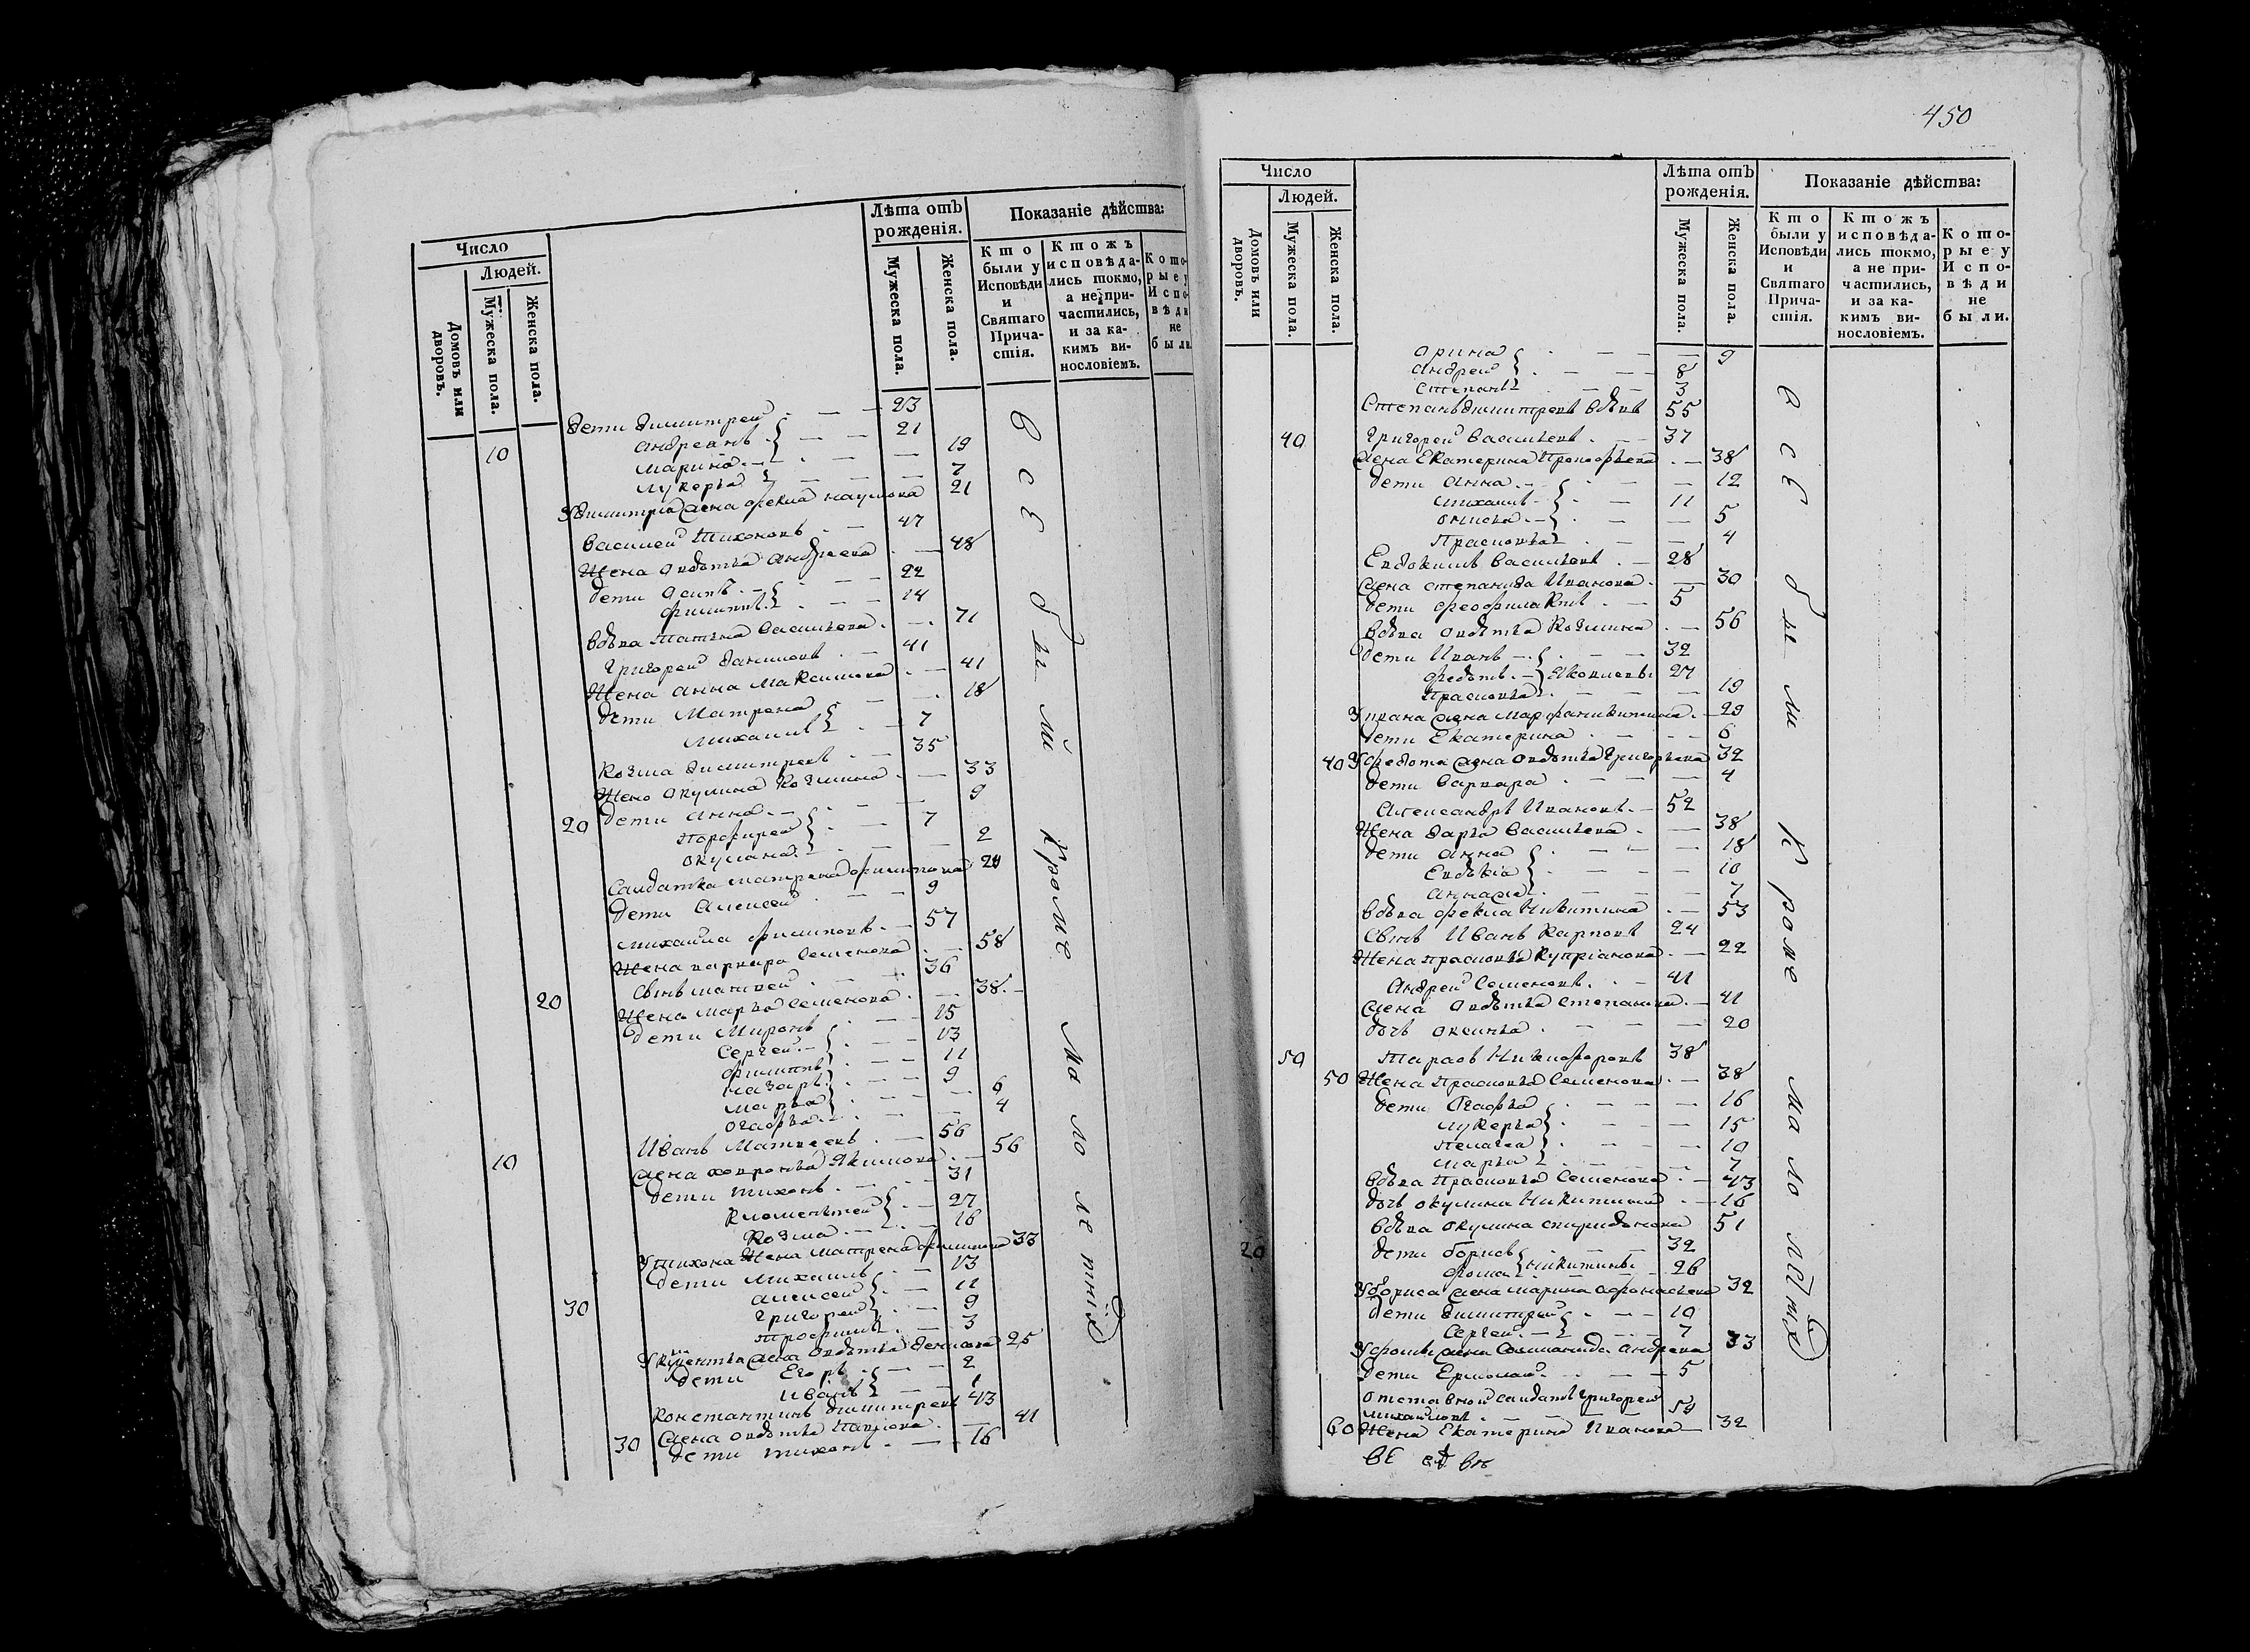 Число
Людей.
Домовъ или дворовъ.
Мужеска пола.
Женска пола.
Лѣта отъ рожденія.
Мужеска пола.
Женска пола.
Показаніе дѣйства:
Кто были у Исповѣди и Святаго Причастія.
Ктожъ исповѣдались токмо, а не причастились, и за какимъ винословіемъ.
Которые у Исповѣди не были.
дети димитрей 23
андреанъ 21
10 марина 19
лукерья 7
У димитрія жена фекла наумова 21
василей тихоновъ 47
жена овдотья андреева 48
дети осипъ 22
филиппъ 14
вдова татьяна васильева 71
григорей даниловъ 41
жена анна максимова 41
дети матрена 18
михаилъ 7
козма димитревъ 35
жена окулина козмина 33
20 дети анна 9
порфирей 7
окулина 2
салдатка матрена филипова 24
дети алексей 9
михайла филиповъ 57
жена варвара семенова 58
сынъ матвей 36
20 жена марья семенова 38
дети миронъ 15
сергей 13
филиппъ 11
назаръ 9
марья 6
огафья 4
10 иванъ матвеевъ 56
жена ховронья якимова 56
дети тихонъ 31
клементей 27
козма 16
У тихона жена матрена филипова 33
дети михаилъ 13
алексей 11
30 григорей 9
трофимъ 3
У клементья жена овдотья денисова 25
дети егоръ 2
иванъ 1
константинъ димитревъ 43
жена овдотья павлова 41
30 дети тихонъ 16
всѣ были кроме малолетнихъ
450
Число
Людей.
Домовъ или дворовъ.
Мужеска пола.
Женска пола.
Лѣта отъ рожденія.
Мужеска пола.
Женска пола.
Показаніе дѣйства:
Кто были у Исповѣди и Святаго Причастія.
Ктожъ исповѣдались токмо, а не причастились, и за какимъ винословіемъ.
Которые у Исповѣди не были.
орина 9
андрей 8
степанъ 3
степанъ димитревъ вдовъ 55
40 григорей васильевъ 37
жена екатерина прокофьева 38
дети анна 12
михаилъ 11
онисья 5
прасковья 4
евдокимъ васильевъ 28
жена степанида иванова 30
дети феофилактъ 5
вдова овдотья козмина 56
дети иванъ 32
федотъ яковлевы 27
прасковья 19
У ивана жена марфа никитина 29
дети екатерина 6
40 У федота жена овдотья григорьева 32
дети варвара 4
александръ ивановъ 52
жена дарья васильева 38
дети анна 18
евдокія 10
аннажъ 7
вдова фекла никитина 53
сынъ иванъ карповъ 24
жена прасковья купріанова 22
андрей семеновъ 41
жена овдотья степанова 41
дочь оксинья 20
50 тарасъ никифоровъ 38
50 жена прасковья семенова 38
дети огафья 16
лукерья 15
пелагея 10
марья 7
вдова прасковья семенова 43
дочь окулина никитина 16
вдова окулина спиридонова 51
20 дети борисъ 32
фома никитины 26
У бориса жена марина афонасьева 32
дети димитрей 10
сергей 7
У фомы жена соломонида андреева 33
дети ермолай 5
отставной салдатъ григорей
михайловъ 59
60 жена екатерина иванова 32
всѣ были кроме малолетнихъ